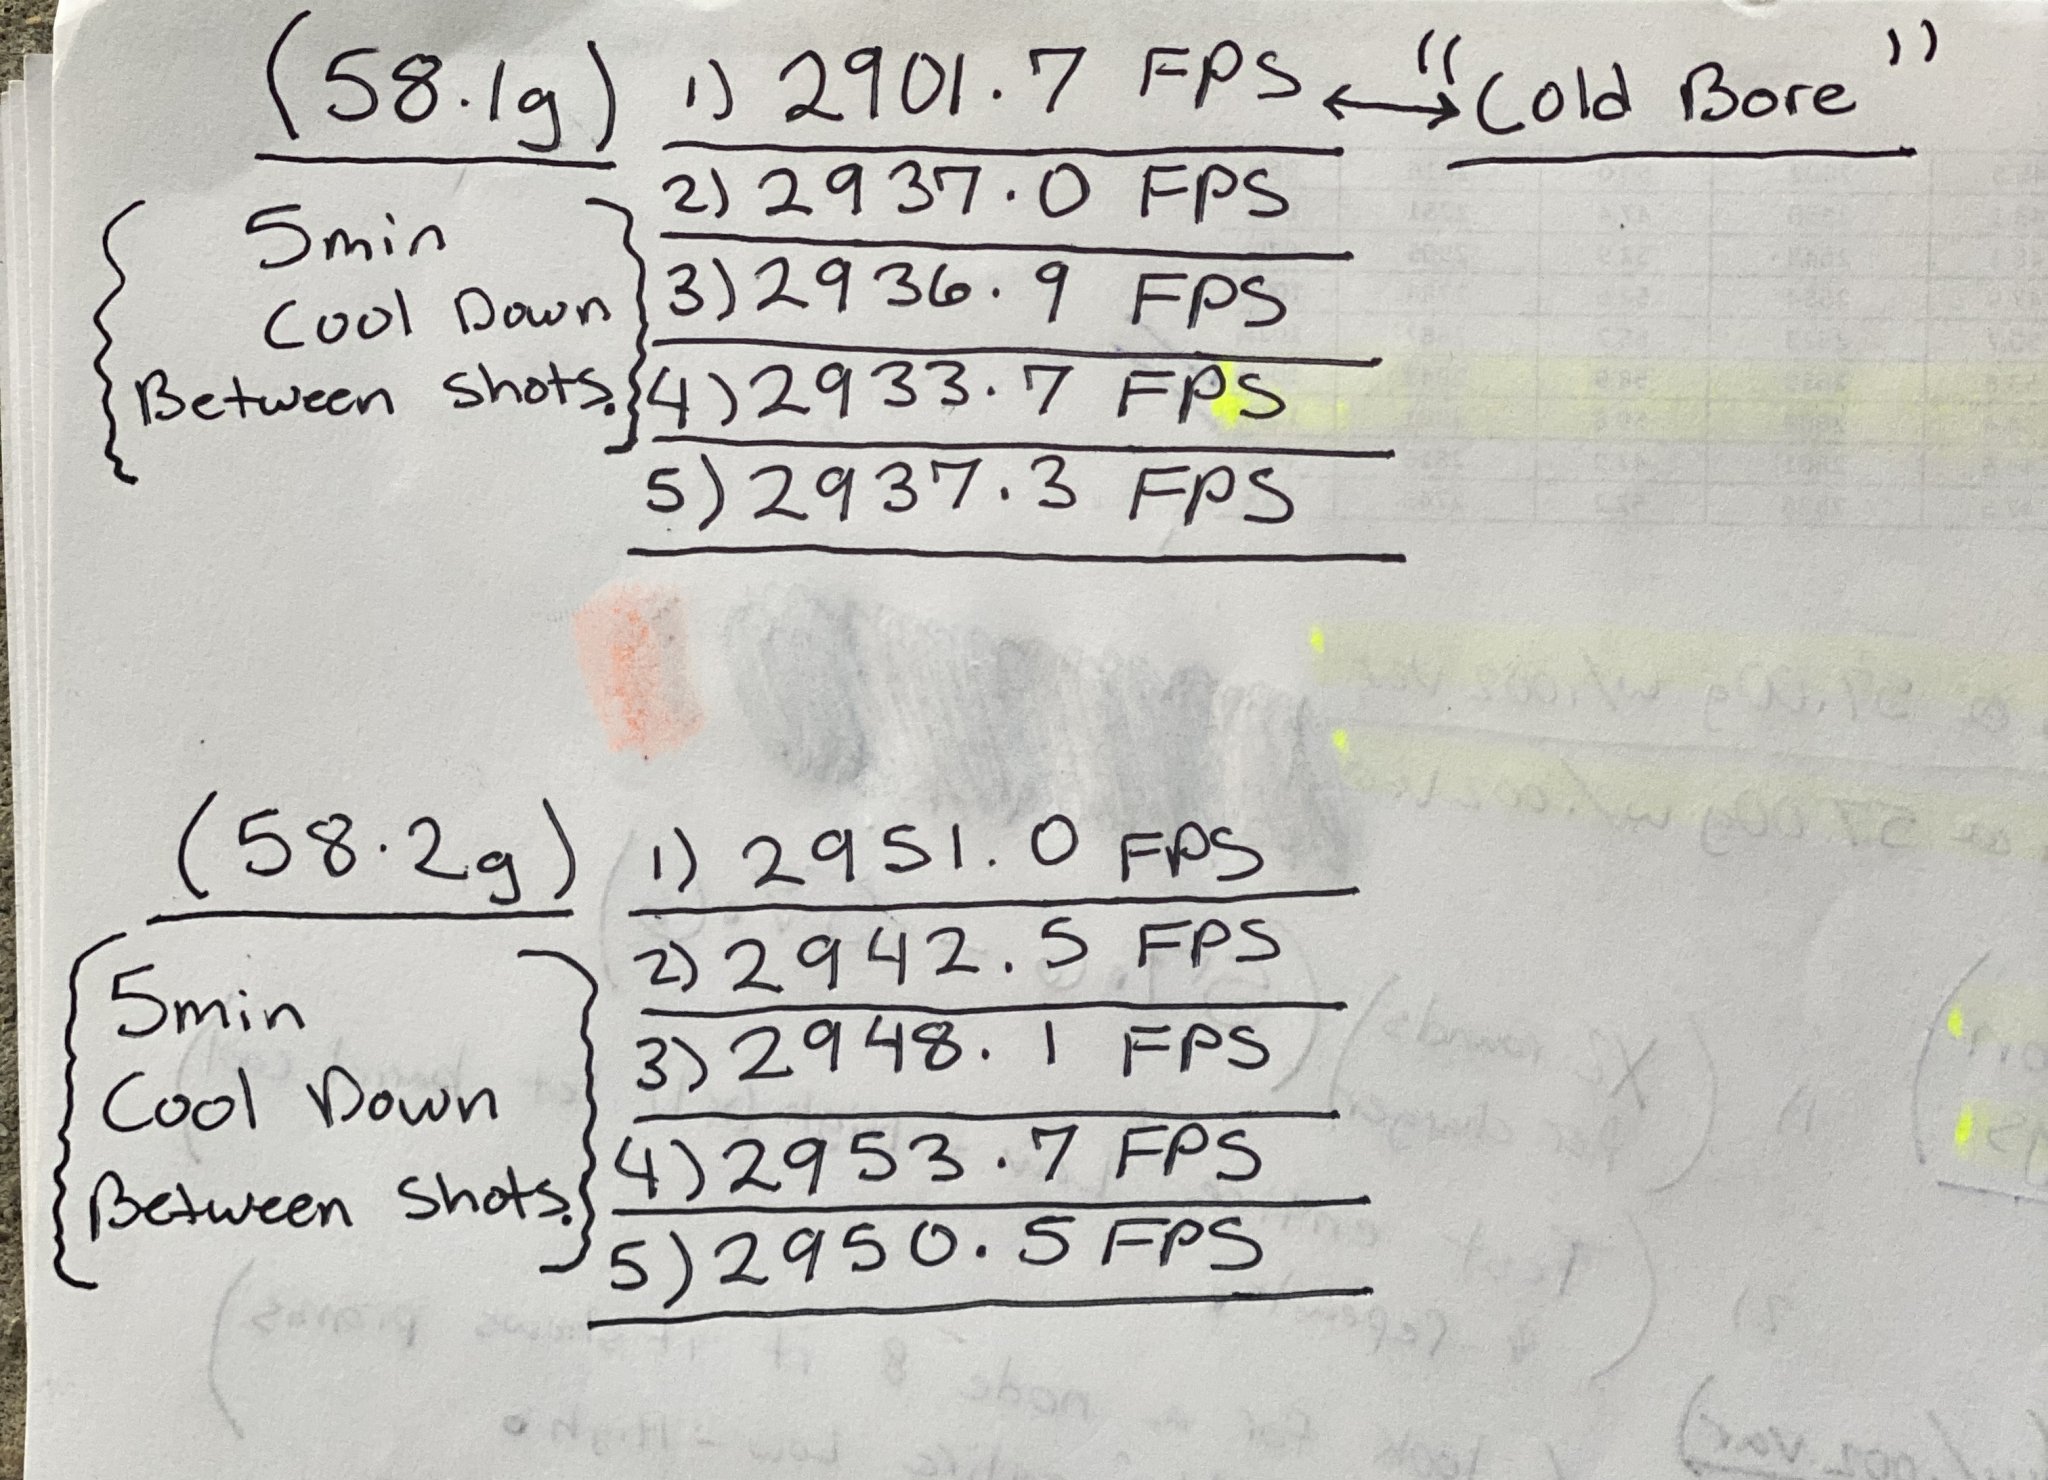 (58.1g) 1) 2901.7 FPS ↔ "Cold Bore"
2) 2937.0 FPS
5min
3) 2936.9 FPS
Cool Down
Between shots.
4) 2933.7 FPS
5) 2937.3 FPS
(58.2g) 1) 2951.0 FPS
2) 2942.5 FPS
5min
3) 2948.1 FPS
Cool Down
4) 2953.7 FPS
Between Shots.
5) 2950.5 FPS